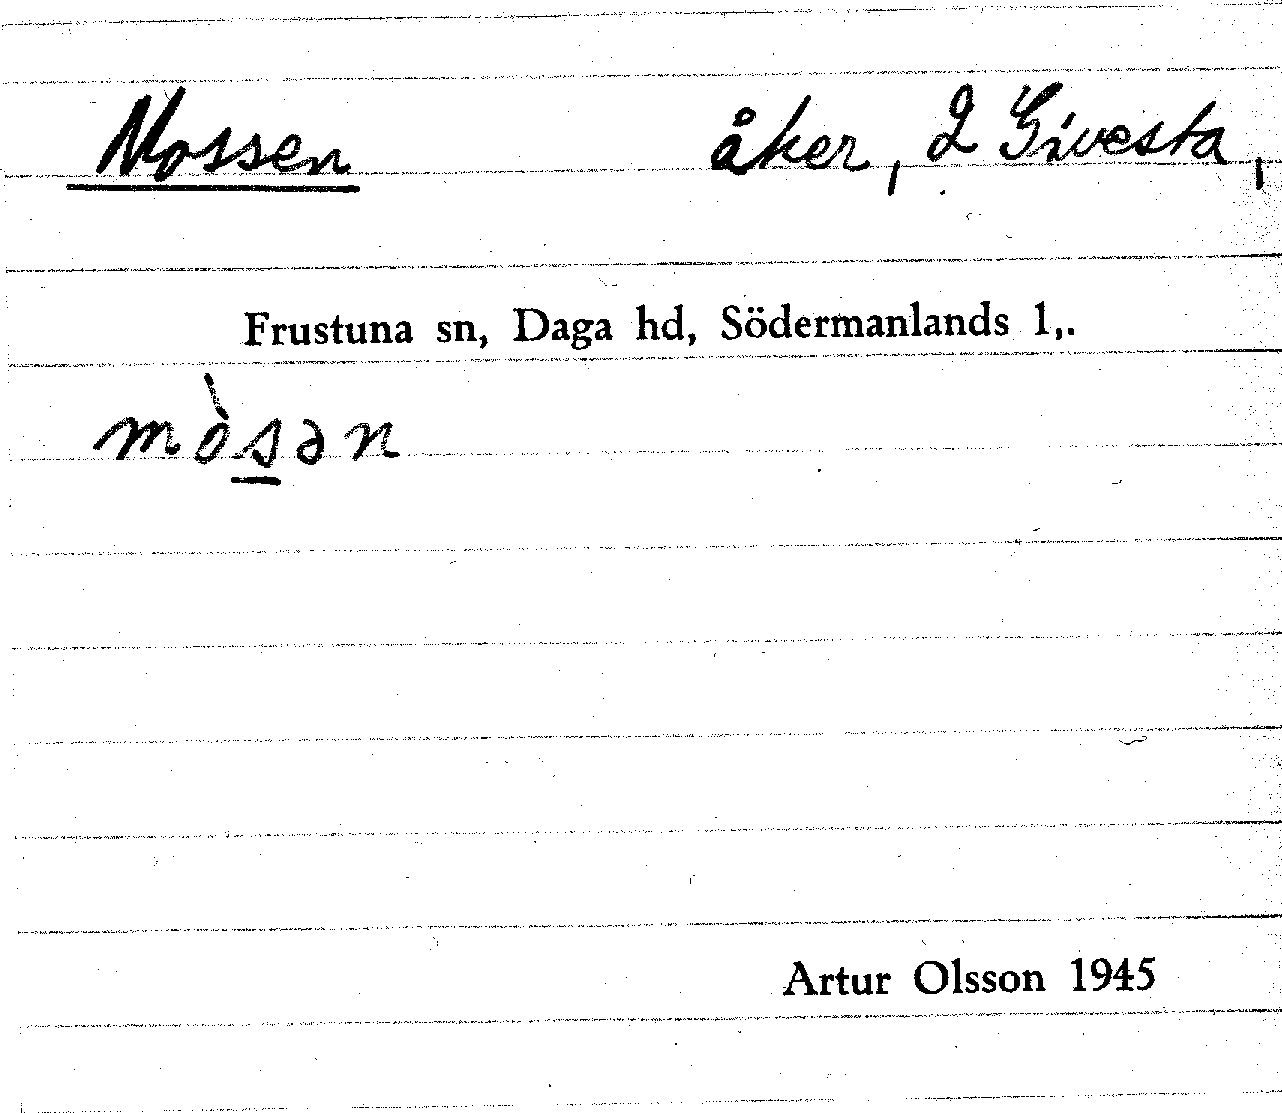 Mossen åker, 2 Givesta,
Frustuna sn, Daga hd, Södermanlands l,.
mòs̲ən
Artur Olsson 1945